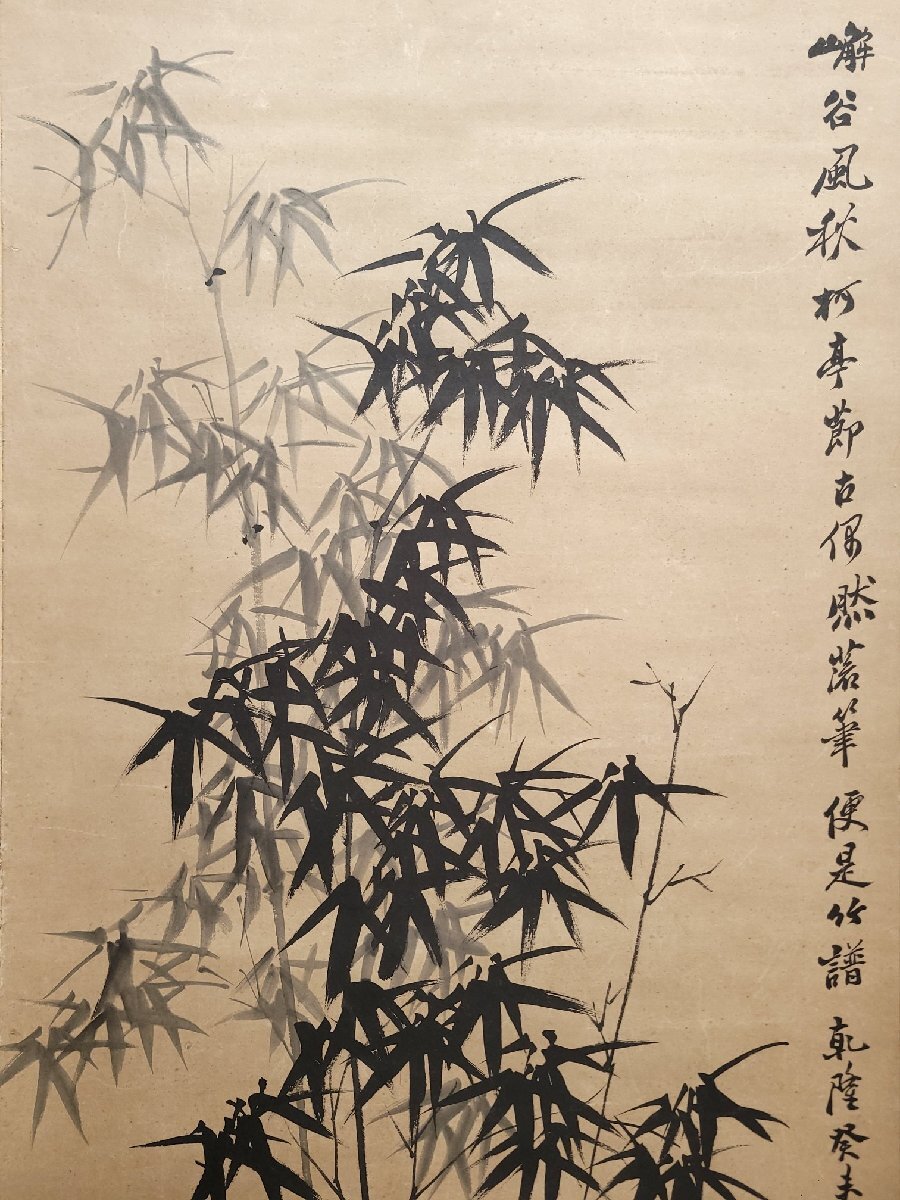 嶰谷風秋柯亭節古偶然落筆便是竹譜乾隆癸未